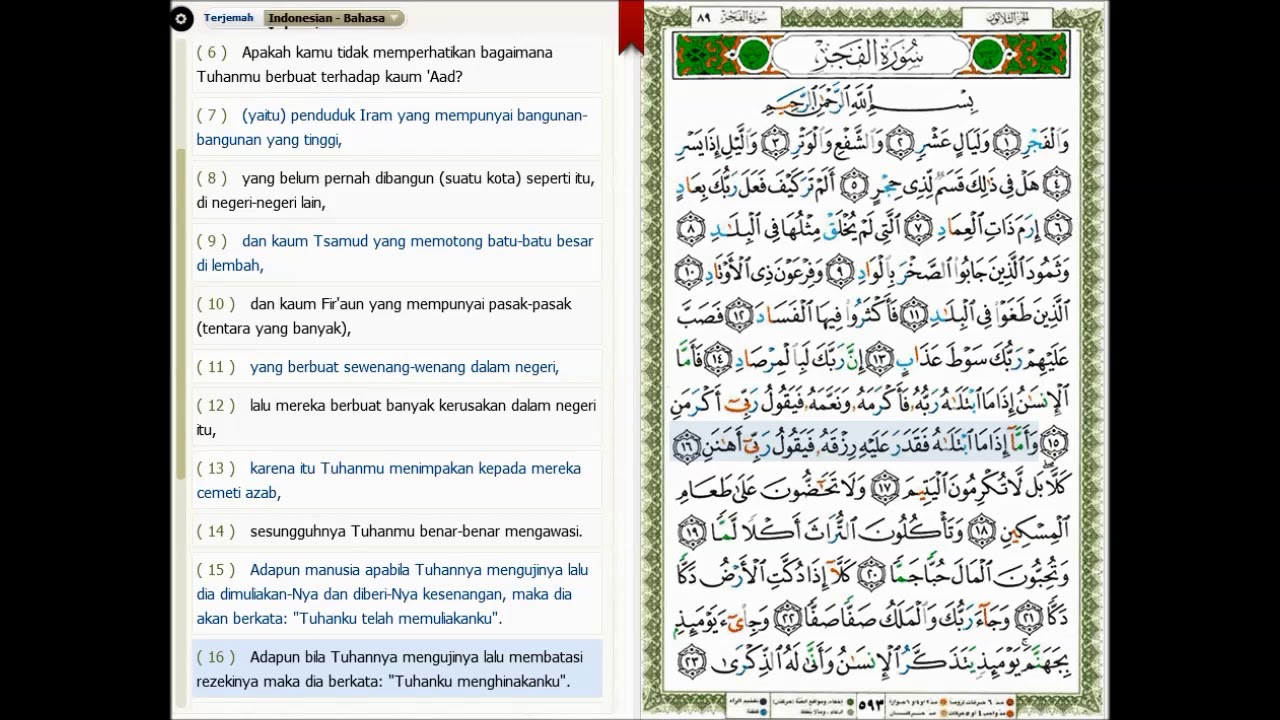 Terjemah Indonesian - Bahasa
( 6 ) Apakah kamu tidak memperhatikan bagaimana
Tuhanmu berbuat terhadap kaum 'Aad?
( 7 ) (yaitu) penduduk Iram yang mempunyai bangunan-
bangunan yang tinggi,
( 8 ) yang belum pernah dibangun (suatu kota) seperti itu,
di negeri-negeri lain,
( 9 ) dan kaum Tsamud yang memotong batu-batu besar
di lembah,
( 10 ) dan kaum Fir'aun yang mempunyai pasak-pasak
(tentara yang banyak),
( 11 ) yang berbuat sewenang-wenang dalam negeri,
( 12 ) lalu mereka berbuat banyak kerusakan dalam negeri
itu,
( 13 ) karena itu Tuhanmu menimpakan kepada mereka
cemeti azab,
( 14 ) sesungguhnya Tuhanmu benar-benar mengawasi.
( 15 ) Adapun manusia apabila Tuhannya mengujinya lalu
dia dimuliakan-Nya dan diberi-Nya kesenangan, maka dia
akan berkata: "Tuhanku telah memuliakanku".
( 16 ) Adapun bila Tuhannya mengujinya lalu membatasi
rezekinya maka dia berkata: "Tuhanku menghinakanku".
الجزء الثلاثون سورة الفجر ٨٩
سُورَةُ الفَجْرِ
بِسْمِ ٱللَّهِ ٱلرَّحْمَٰنِ ٱلرَّحِيمِ
وَٱلْفَجْرِ ١ وَلَيَالٍ عَشْرٍ ٢ وَٱلشَّفْعِ وَٱلْوَتْرِ ٣ وَٱلَّيْلِ إِذَا يَسْرِ
٤ هَلْ فِى ذَٰلِكَ قَسَمٌ لِّذِى حِجْرٍ ٥ أَلَمْ تَرَ كَيْفَ فَعَلَ رَبُّكَ بِعَادٍ
٦ إِرَمَ ذَاتِ ٱلْعِمَادِ ٧ ٱلَّتِى لَمْ يُخْلَقْ مِثْلُهَا فِى ٱلْبِلَٰدِ ٨
وَثَمُودَ ٱلَّذِينَ جَابُوا۟ ٱلصَّخْرَ بِٱلْوَادِ ٩ وَفِرْعَوْنَ ذِى ٱلْأَوْتَادِ ١٠
ٱلَّذِينَ طَغَوْا۟ فِى ٱلْبِلَٰدِ ١١ فَأَكْثَرُوا۟ فِيهَا ٱلْفَسَادَ ١٢ فَصَبَّ
عَلَيْهِمْ رَبُّكَ سَوْطَ عَذَابٍ ١٣ إِنَّ رَبَّكَ لَبِٱلْمِرْصَادِ ١٤ فَأَمَّا
ٱلْإِنسَٰنُ إِذَا مَا ٱبْتَلَىٰهُ رَبُّهُۥ فَأَكْرَمَهُۥ وَنَعَّمَهُۥ فَيَقُولُ رَبِّىٓ أَكْرَمَنِ
١٥ وَأَمَّآ إِذَا مَا ٱبْتَلَىٰهُ فَقَدَرَ عَلَيْهِ رِزْقَهُۥ فَيَقُولُ رَبِّىٓ أَهَٰنَنِ ١٦
كَلَّا ۖ بَل لَّا تُكْرِمُونَ ٱلْيَتِيمَ ١٧ وَلَا تَحَٰٓضُّونَ عَلَىٰ طَعَامِ
ٱلْمِسْكِينِ ١٨ وَتَأْكُلُونَ ٱلتُّرَاثَ أَكْلًا لَّمًّا ١٩
وَتُحِبُّونَ ٱلْمَالَ حُبًّا جَمًّا ٢٠ كَلَّآ إِذَا دُكَّتِ ٱلْأَرْضُ دَكًّا
دَكًّا ٢١ وَجَآءَ رَبُّكَ وَٱلْمَلَكُ صَفًّا صَفًّا ٢٢ وَجِا۟ىٓءَ يَوْمَئِذٍۭ
بِجَهَنَّمَ ۚ يَوْمَئِذٍ يَتَذَكَّرُ ٱلْإِنسَٰنُ وَأَنَّىٰ لَهُ ٱلذِّكْرَىٰ ٢٣
٥٩٣